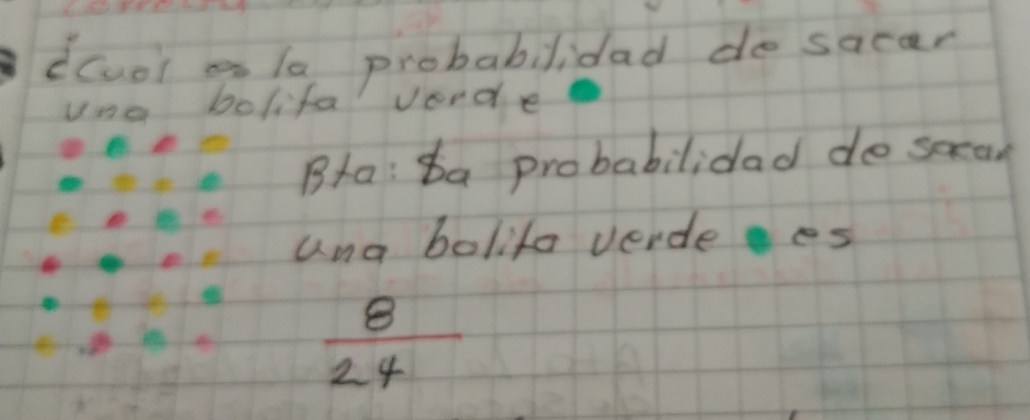 ¿Cuál es la probabilidad de sacar
una bolita verde
Rta: La probabilidad de sacar
una bolita verde es
8
24